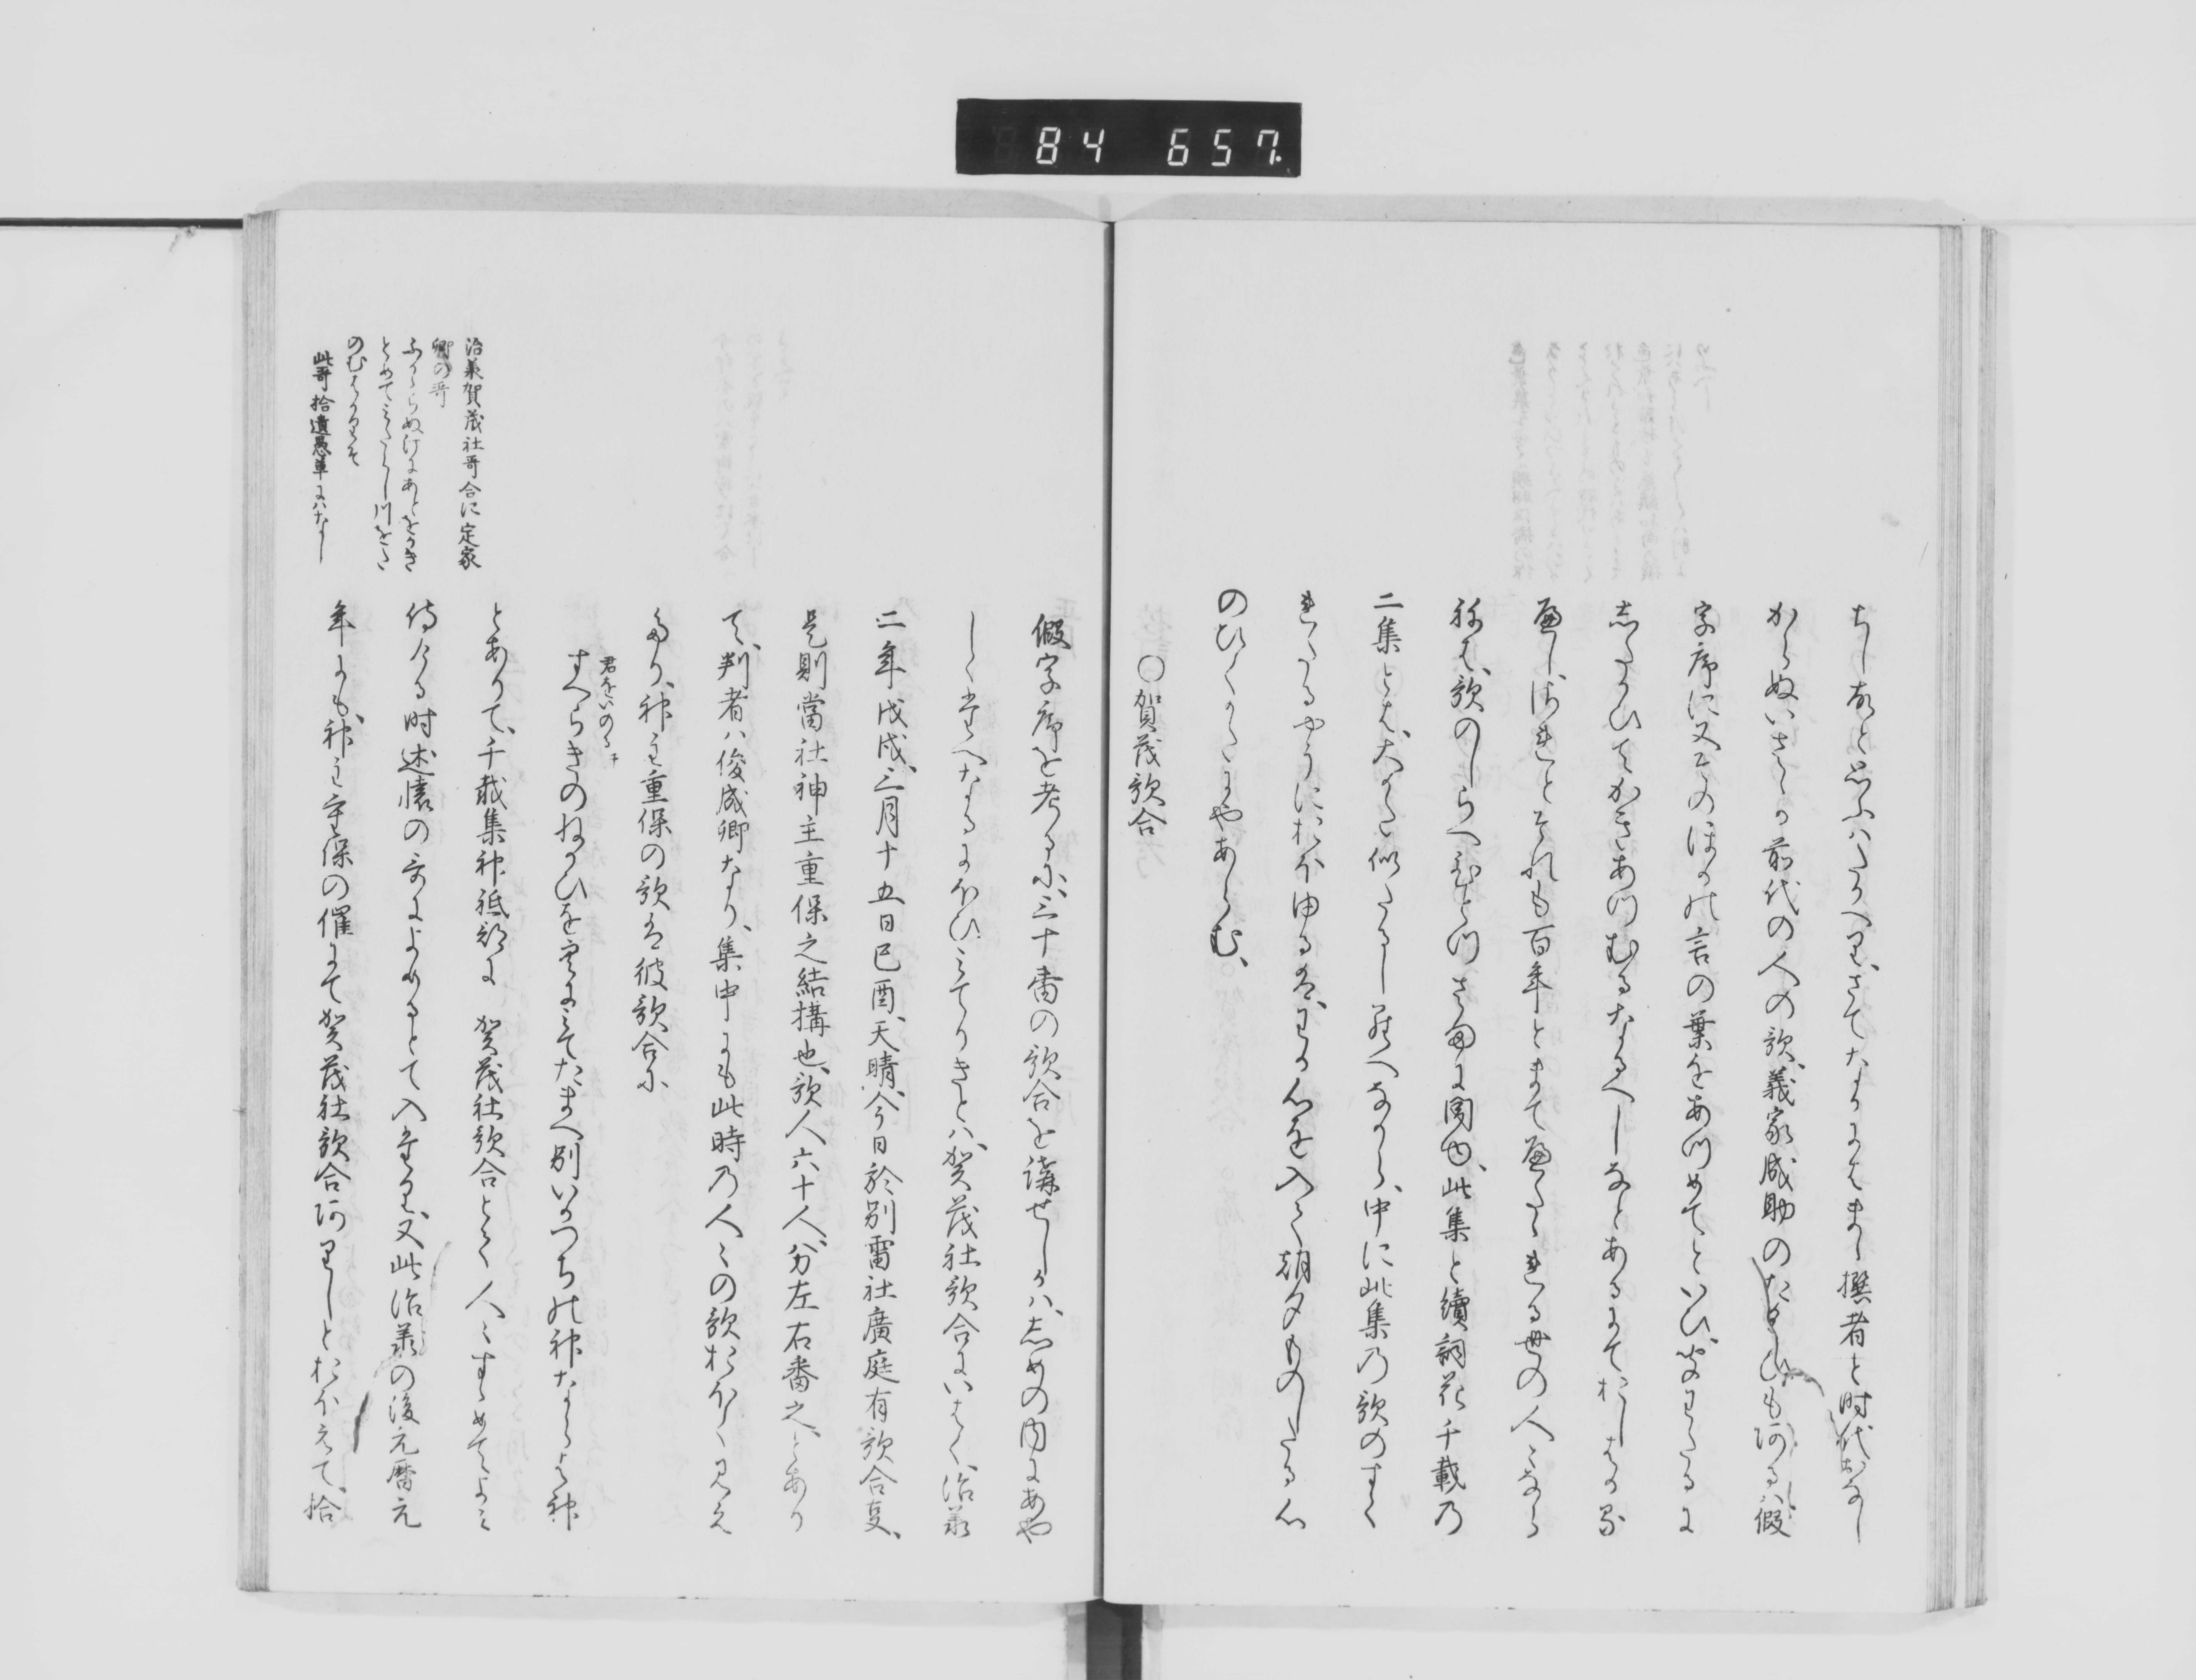 84 657
ちし故と思ふハたかへり、さてたかまはまゝ撰者と時代おなし
からぬいさゝか前代の人の歌、義家成助のたくひも阿る、假
字序に又そのほかの言の葉をあつめてといひ、
したかひてかきあつむるなるへしなとあるにて
されとそれも百年とまて
ねは、歌のしらへひとつさまに聞ゆ、此集と續詞花千載乃
二集とは、大かた似たるしらへなから、中に此集乃歌のすく
れたるやうにおほゆるは、わか心を入て朝夕ものしたる心
のひくかたにやあらむ、
〇賀茂歌合
假字序を考るに、三十番の歌合を講せしハ、志めの内にあや
しくたへなるにほひみてりきとハ、賀茂社歌合にいはく、治承
二年戊戌、三月十五日己酉、天晴、今日於別雷社廣庭有歌合事、
是則當社神主重保之結構也、歌人六十人、分左右番之、とあり
て、判者ハ俊成卿なり、集中にも此時乃人々の歌おほく見え
たり、神主重保の歌は彼歌合に
君をいのる
すへらきのねかひを空にみてたまへ別いかつちの神ならは神
とありて、千載集神祇部に 賀茂社歌合とて人々すゝめてよみ
侍ける時述懐の哥によめるとて入たり、又此治承の後元暦元
年にも、神主重保の催にて賀茂社歌合阿りしとおほえて、拾
治承賀茂社哥合に定家
卿の哥
ふからぬ汀にあとをかき
とめてみたらし川を
のむはかりそ
此哥拾遺愚草にハなし